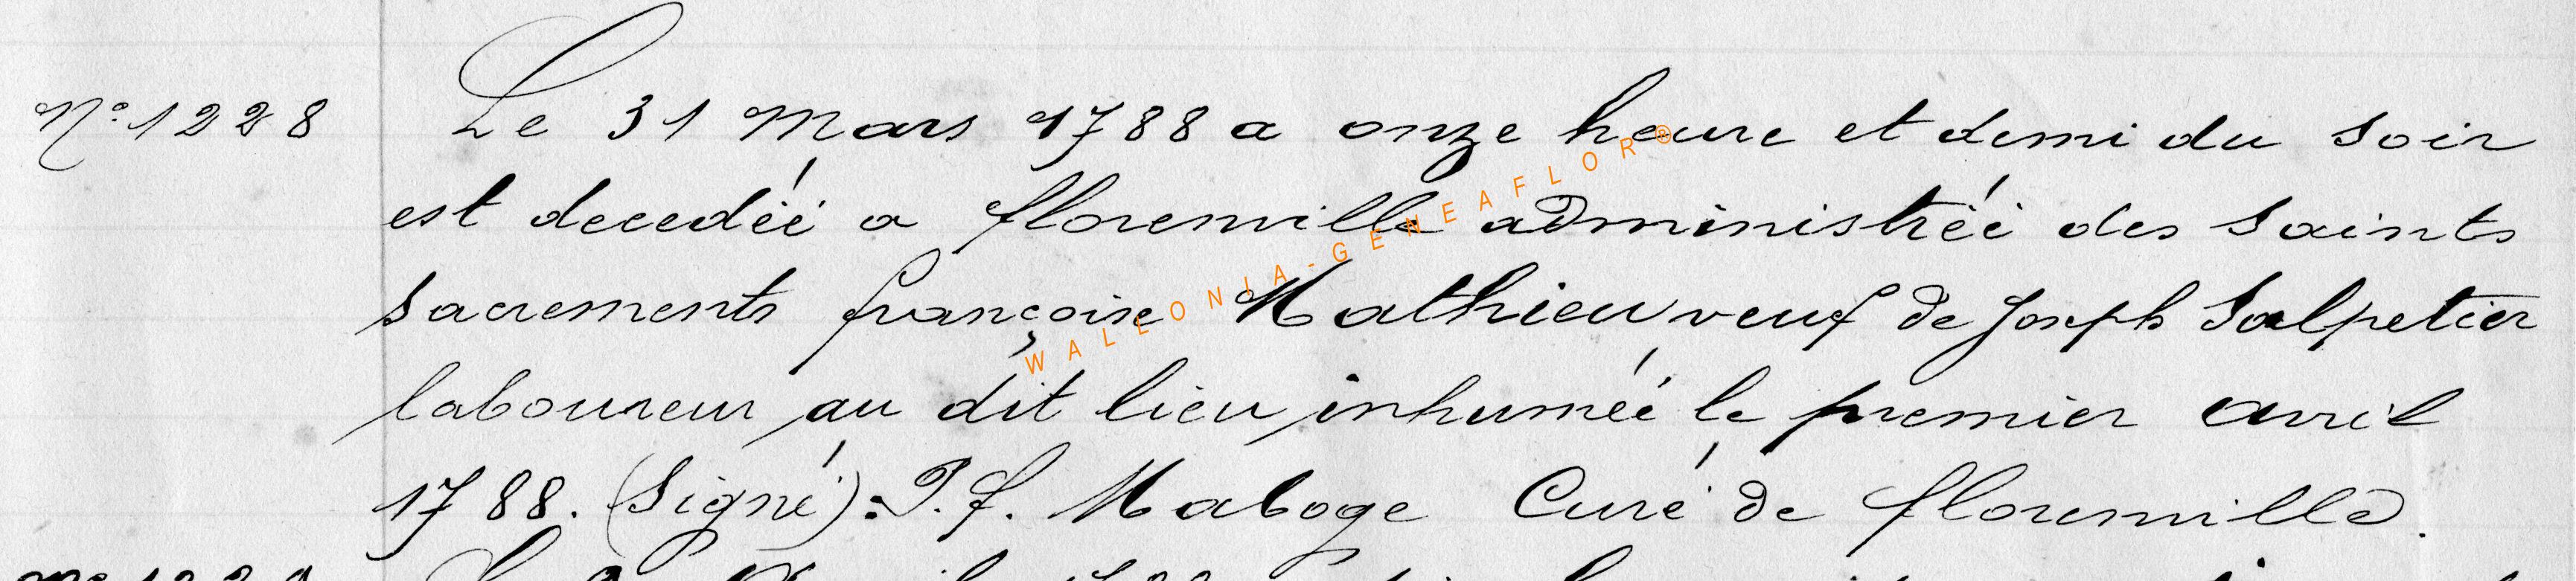 N° 1228 Le 31 Mars 1788 a onze heure et demi du soir
est decedéé a florenville administréé des saints
sacrements françoise Mathieu veuf de Joseph Salpetier
laboureur au dit lieu inhuméé le premier avril
1788. (Signé): P. f. Maboge Curé de florenville.
WALLONIA-GENEAFLOR®